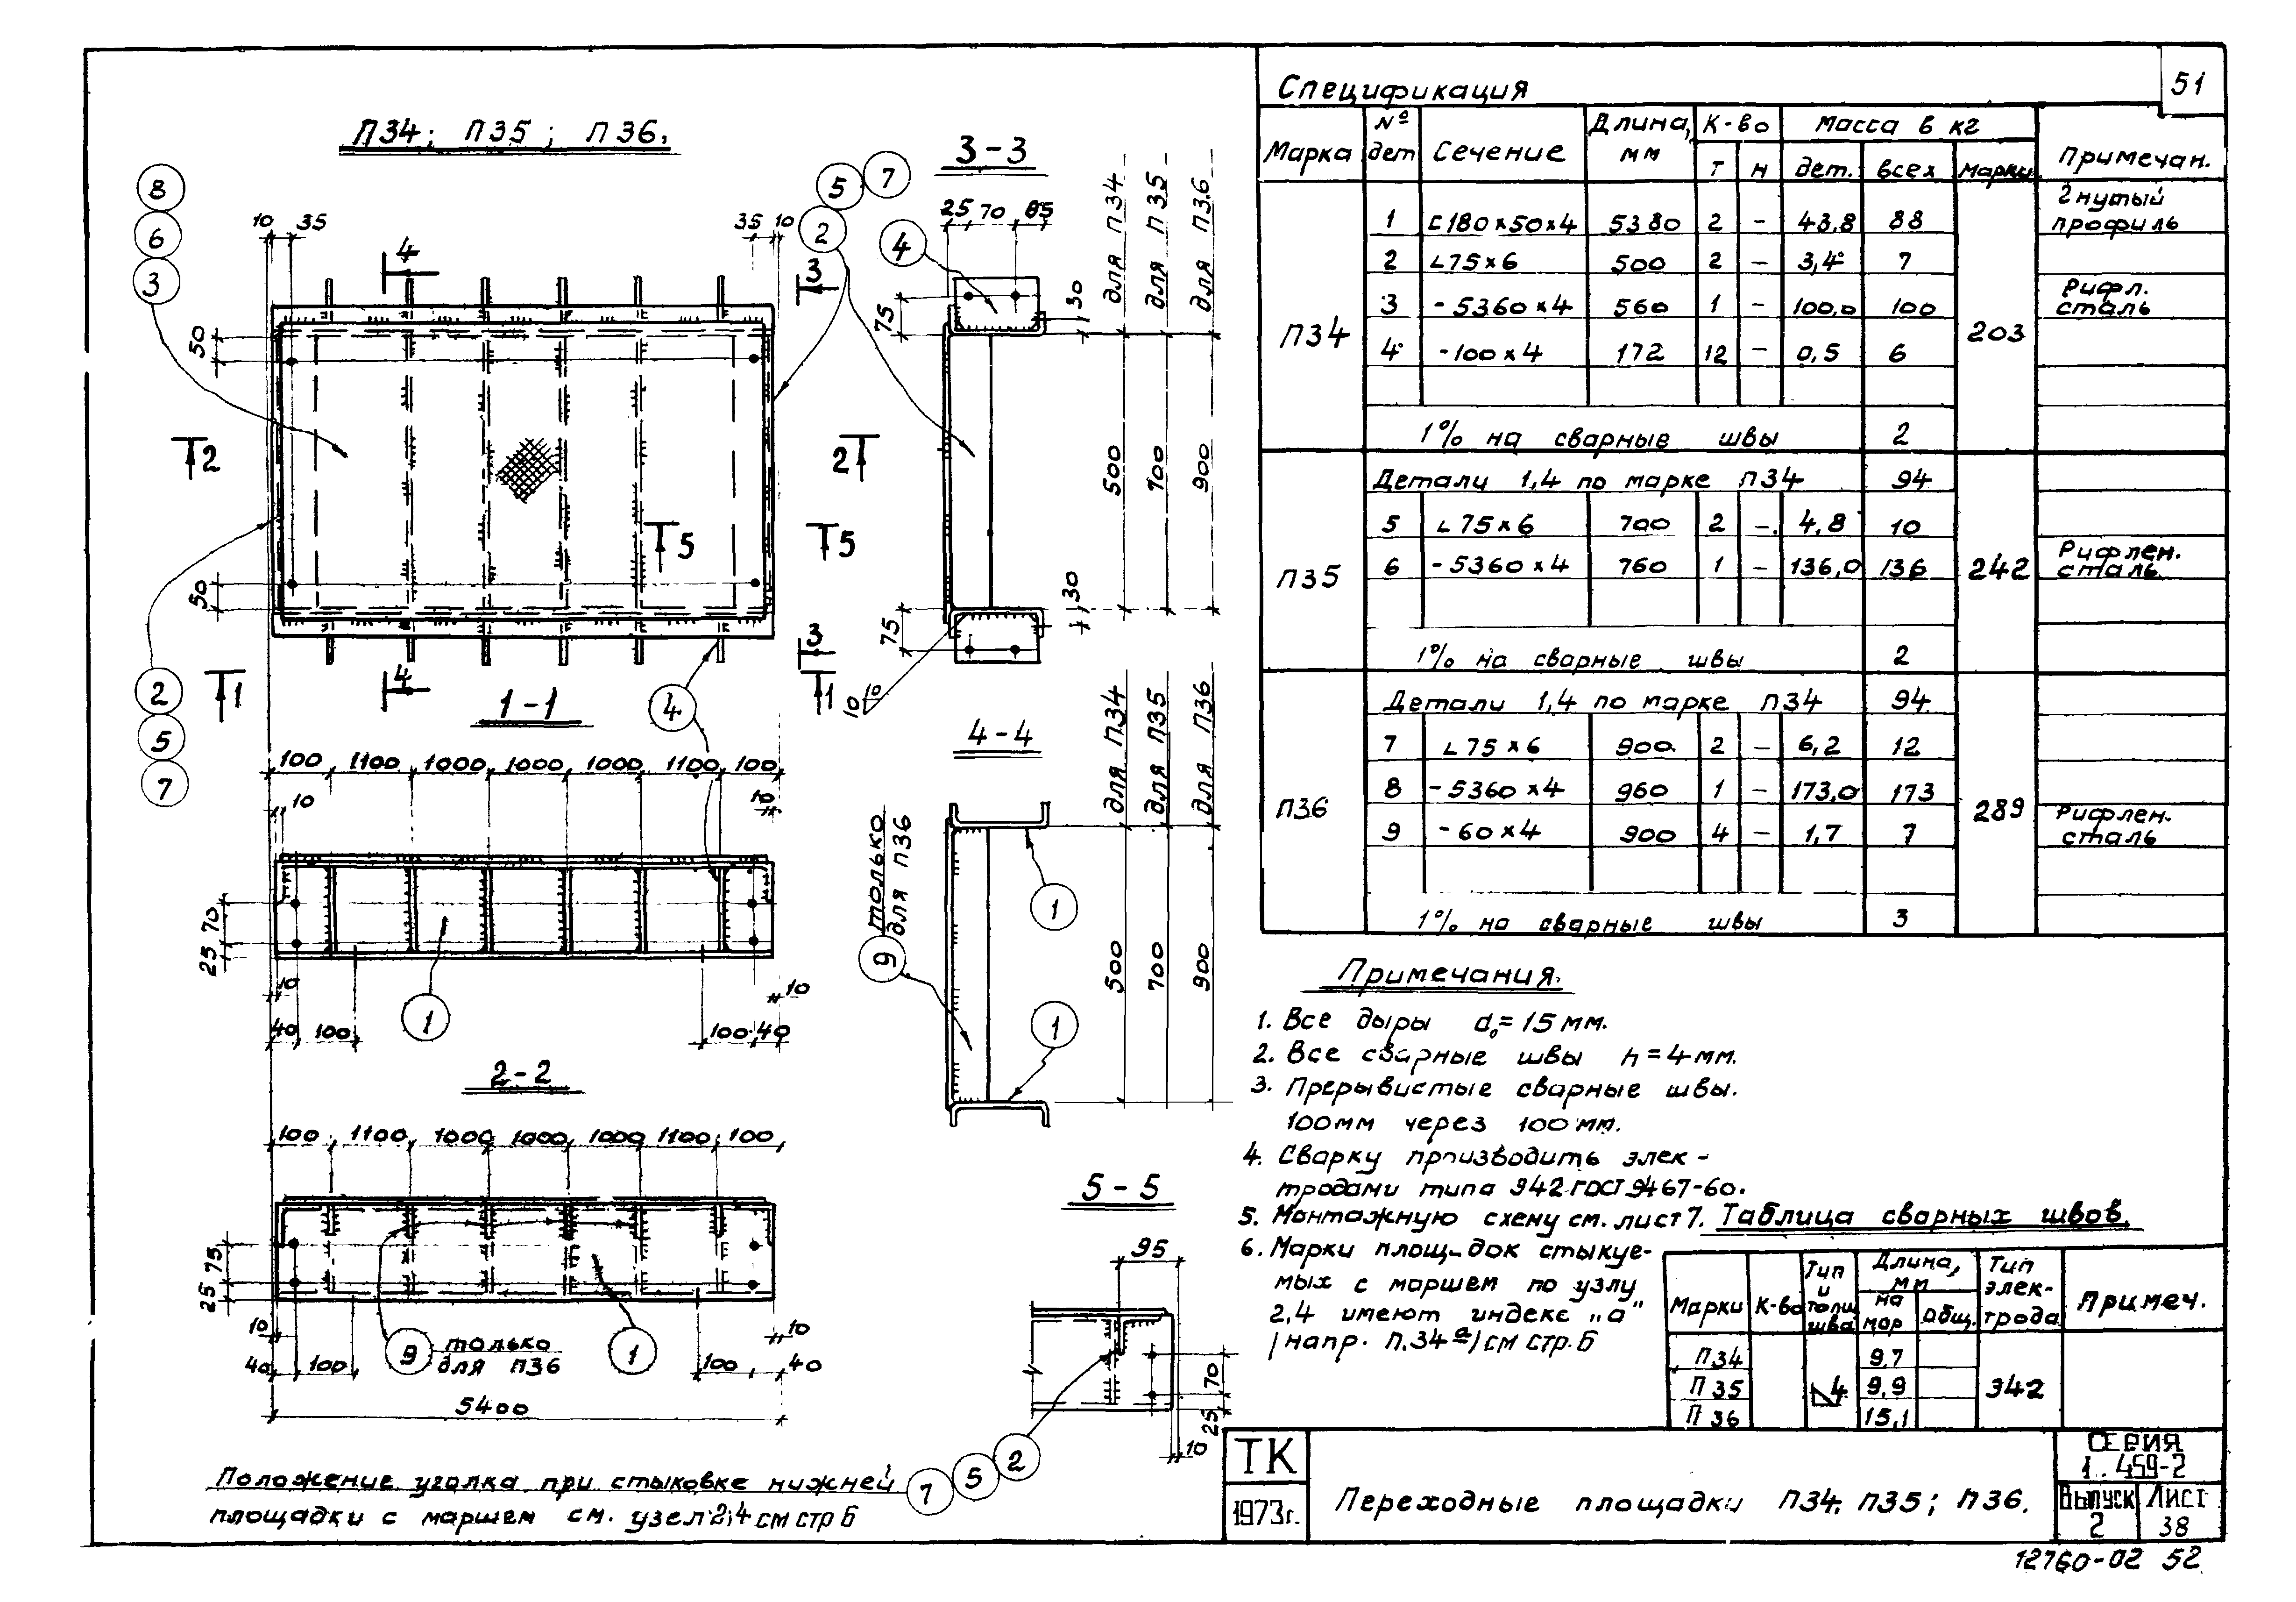 51
П34; П35; П36.
8
6
3
5
7
2
10 35
35 10
4
3
50
Т2
2Т
Т5
Т5
50
2
5
7
Т1
4
3
Т1
4
3-3
25 70 85
4
75
30
для П34
для П35
для П36
500
700
900
75
30
10
10
1-1
100 1100 1000 1000 1000 1100 100
10
10
70
25
10
10
40 100
1
100 40
2-2
100 1100 1000 1000 1000 1100 100
75
25
10
10
40 100
9 только
для П36
1
100 40
5400
4-4
для П34
для П35
для П36
только
для П36
9
1
1
500
700
900
5-5
95
70
25
10
7 5 2
Положение уголка при стыковке нижней
площадки с маршем см. узел 2;4 см стр 6
Спецификация
Марка № дет Сечение Длина, мм К-во Масса в кг Примечан.
т н дет. всех марки
П34 1 [180×50×4 5380 2 - 43,8 88 203 Гнутый профиль
2 ∟75×6 500 2 - 3,4 7
3 -5360×4 560 1 - 100,0 100 Рифл. сталь
4 -100×4 172 12 - 0,5 6
1% на сварные швы 2
Детали 1,4 по марке П34 94
П35 5 ∟75×6 700 2 - 4,8 10 242
6 -5360×4 760 1 - 136,0 136 Рифлен. сталь
1% на сварные швы 2
Детали 1,4 по марке П34 94
П36 7 ∟75×6 900 2 - 6,2 12 289
8 -5360×4 960 1 - 173,0 173
9 -60×4 900 4 - 1,7 7 Рифлен. сталь
1% на сварные швы 3
Примечания.
1. Все дыры d₀=15мм.
2. Все сварные швы h=4мм.
3. Прерывистые сварные швы.
100мм через 100мм.
4. Сварку производить элек-
тродами типа Э42 ГОСТ 9467-60.
5. Монтажную схему см. лист 7.
6. Марки площадок стыкуе-
мых с маршем по узлу
2,4 имеют индекс „а"
/напр. П.34а/ см стр. 6
Таблица сварных швов.
Марки К-во Тип и толщ шва Длина, мм Тип элек- трода Примеч.
на мар общ.
П34 9,7
П35 ◺4 9,9 Э42
П36 15,1
ТК
1973г.
Переходные площадки П34, П35; П36.
СЕРИЯ
1.459-2
Выпуск
2
Лист
38
12760-02 52